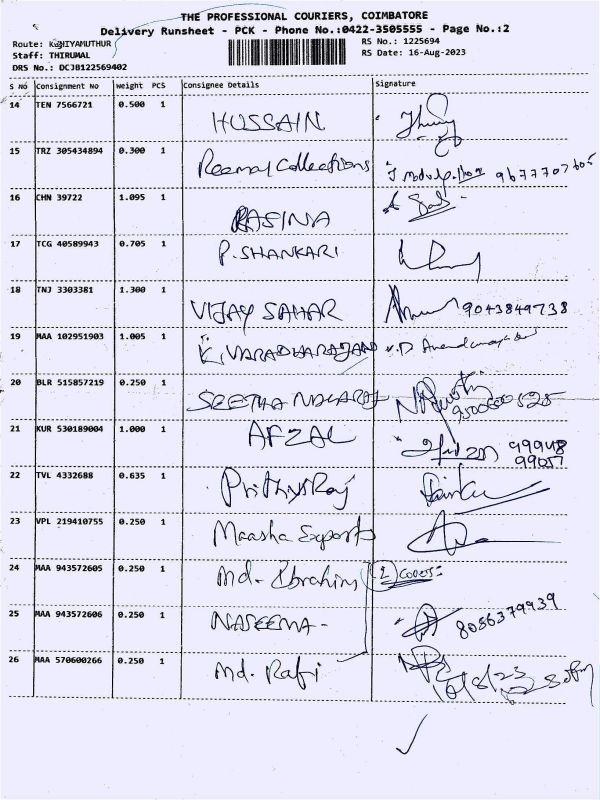 THE PROFESSIONAL COURIERS, COIMBATORE
Delivery Runsheet - PCK - Phone No.:0422-3505555 - Page No.:2
Route: KUNIYAMUTHUR
RS No.: 1225694
Staff: THIRUMAL
RS Date: 16-Aug-2023
DRS No.: DCJB122569402
S No Consignment No Weight PCS Consignee Details Signature
14 TEN 7566721 0.500 1 HUSSAIN
15 TRZ 305434894 0.300 1 Reemal Collections 9677707605
16 CHN 39722 1.095 1 RASINA
17 TCG 40589943 0.705 1 P. SHANKARI
18 TNJ 3303381 1.300 1 VIJAY SAHAR 9043849738
19 MAA 102951903 1.005 1 K. VARADHARAJAN
20 BLR 515857219 0.250 1 SEETHA
21 KUR 530189004 1.000 1 AFZAL 99948
99057
22 TVL 4332688 0.635 1 PrithviRaj
23 VPL 219410755 0.250 1 Maasha Exports
24 MAA 943572605 0.250 1 Md. Ibrahim 2 covers
25 MAA 943572606 0.250 1 NASEEMA - 8056379939
26 MAA 570600266 0.250 1 Md. Rafi